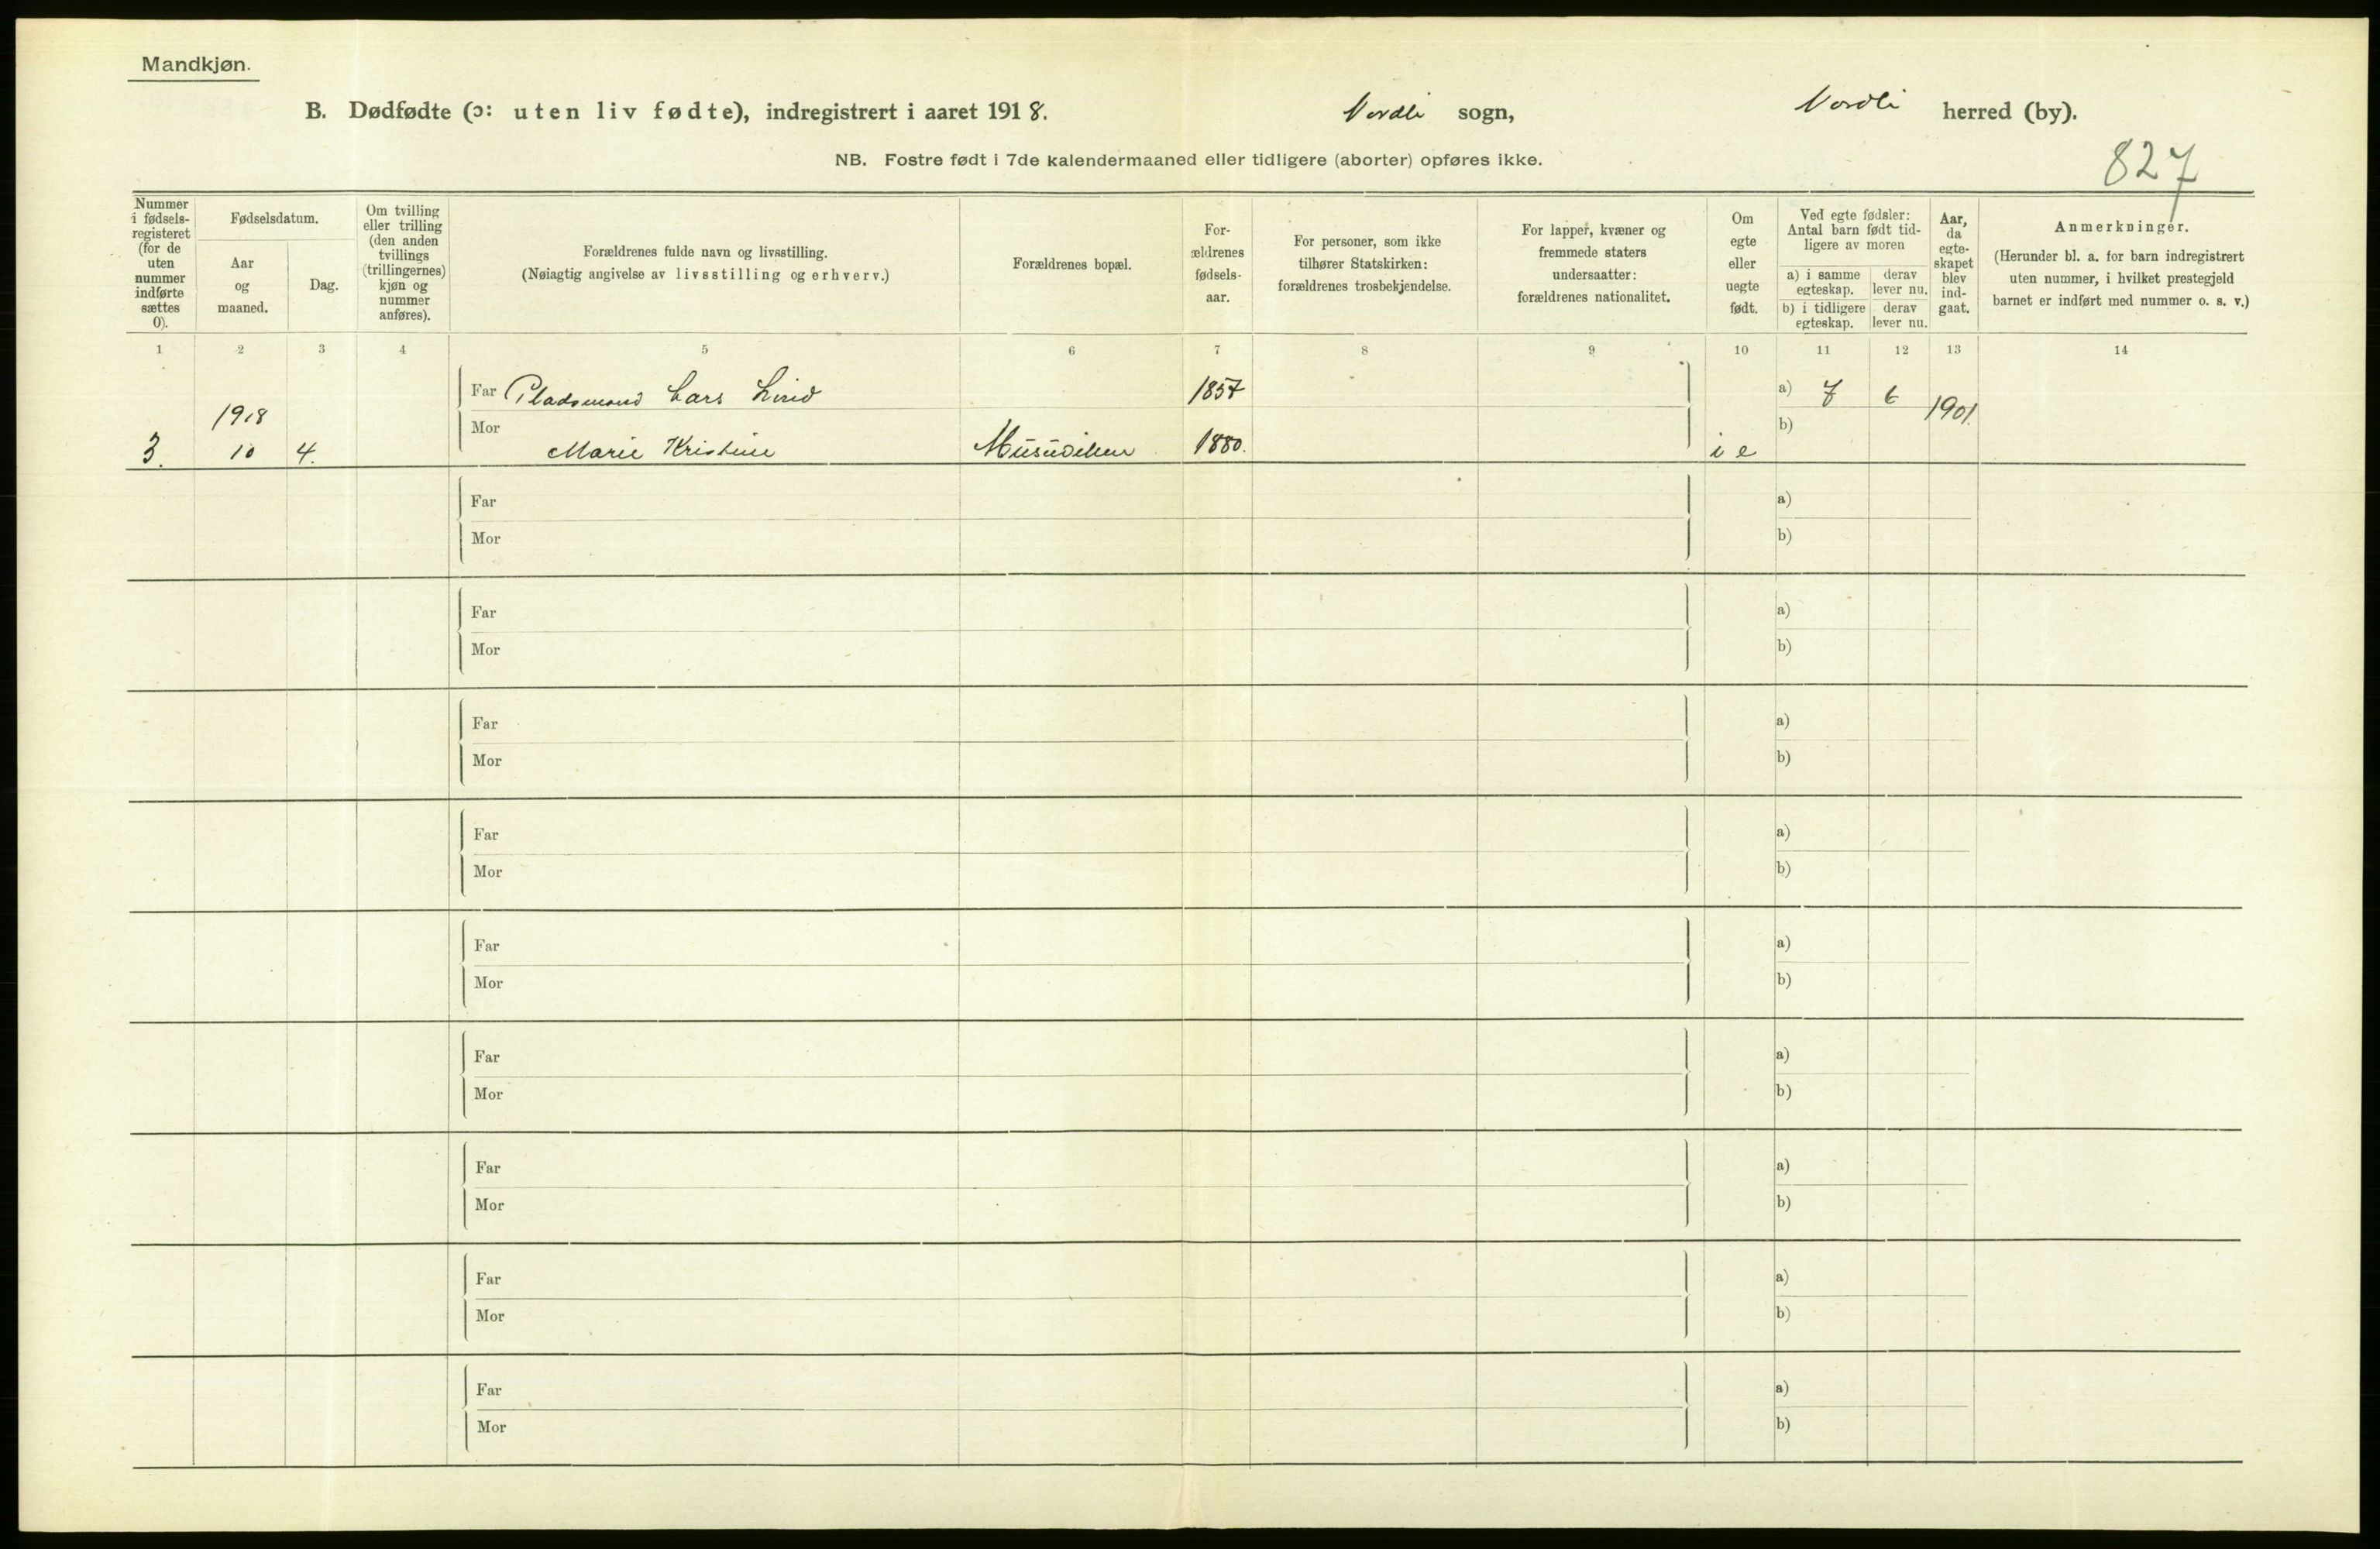 Mandkjøn.
B. Dødfødte (ɔ: uten liv fødte), indregistrert i aaret 1918. Nordli sogn, Nordli herred (by).
NB. Fostre født i 7de kalendermaaned eller tidligere (aborter) opføres ikke.
827
Nummer
i fødsels-
registeret
(for de
uten
nummer
indførte
sættes
0).
Fødselsdatum.
Aar
og
maaned.
Dag.
Om tvilling
eller trilling
(den anden
tvillings
(trillingernes)
kjøn og
nummer
anføres).
Forældrenes fulde navn og livsstilling.
(Nøiagtig angivelse av livsstilling og erhverv.)
Forældrenes bopæl.
For-
ældrenes
fødsels-
aar.
For personer, som ikke
tilhører Statskirken:
forældrenes trosbekjendelse.
For lapper, kvæner og
fremmede staters
undersaatter:
forældrenes nationalitet.
Om
egte
eller
uegte
født.
Ved egte fødsler:
Antal barn født tid-
ligere av moren
a) i samme
egteskap.
derav
lever nu.
b) i tidligere
egteskap.
derav
lever nu.
Aar,
da
egte-
skapet
blev
ind-
gaat.
Anmerkninger.
(Herunder bl. a. for barn indregistrert
uten nummer, i hvilket prestegjeld
barnet er indført med nummer o. s. v.)
1 2 3 4 5 6 7 8 9 10 11 12 13 14
Far Pladsmand Lars Lind 1857 a) 7 6 1901.
1918
Mor b)
3. 10 4. Marie Kristine 1880. i e
Far a)
Mor b)
Far a)
Mor b)
Far a)
Mor b)
Far a)
Mor b)
Far a)
Mor b)
Far a)
Mor b)
Far a)
Mor b)
Far a)
Mor b)
Far a)
Mor b)